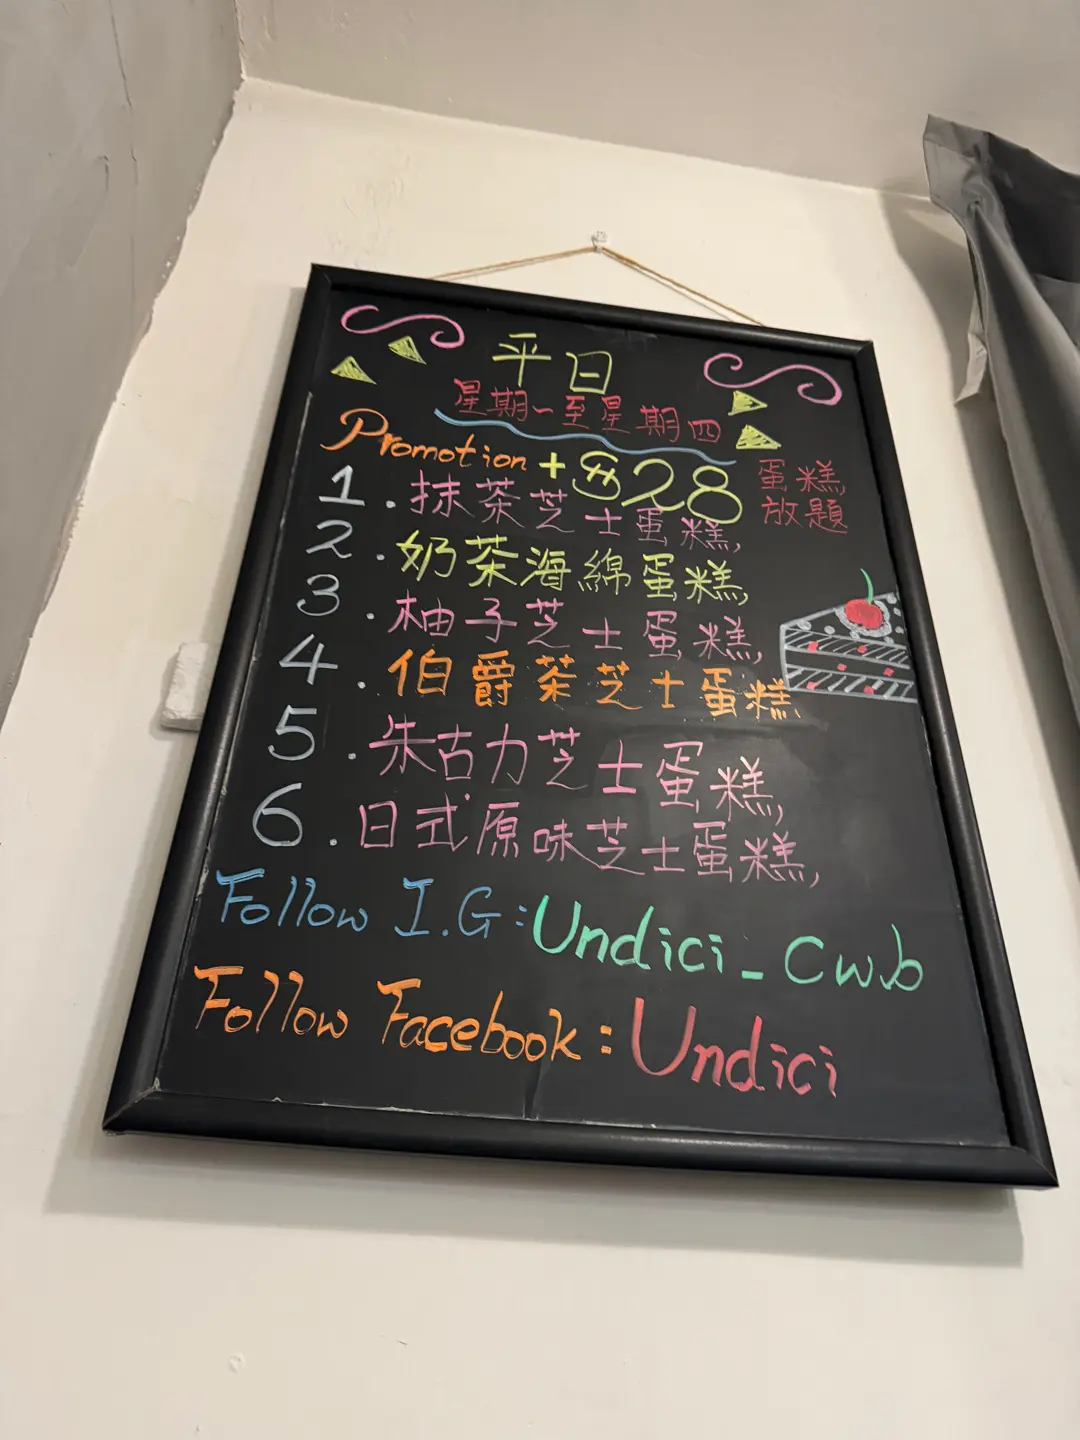 平日
星期一至星期四
Promotion +$28 蛋糕放題
1. 抹茶芝士蛋糕,
2. 奶茶海綿蛋糕,
3. 柚子芝士蛋糕,
4. 伯爵茶芝士蛋糕
5. 朱古力芝士蛋糕,
6. 日式原味芝士蛋糕,
Follow I.G: Undici_Cwb
Follow Facebook: Undici